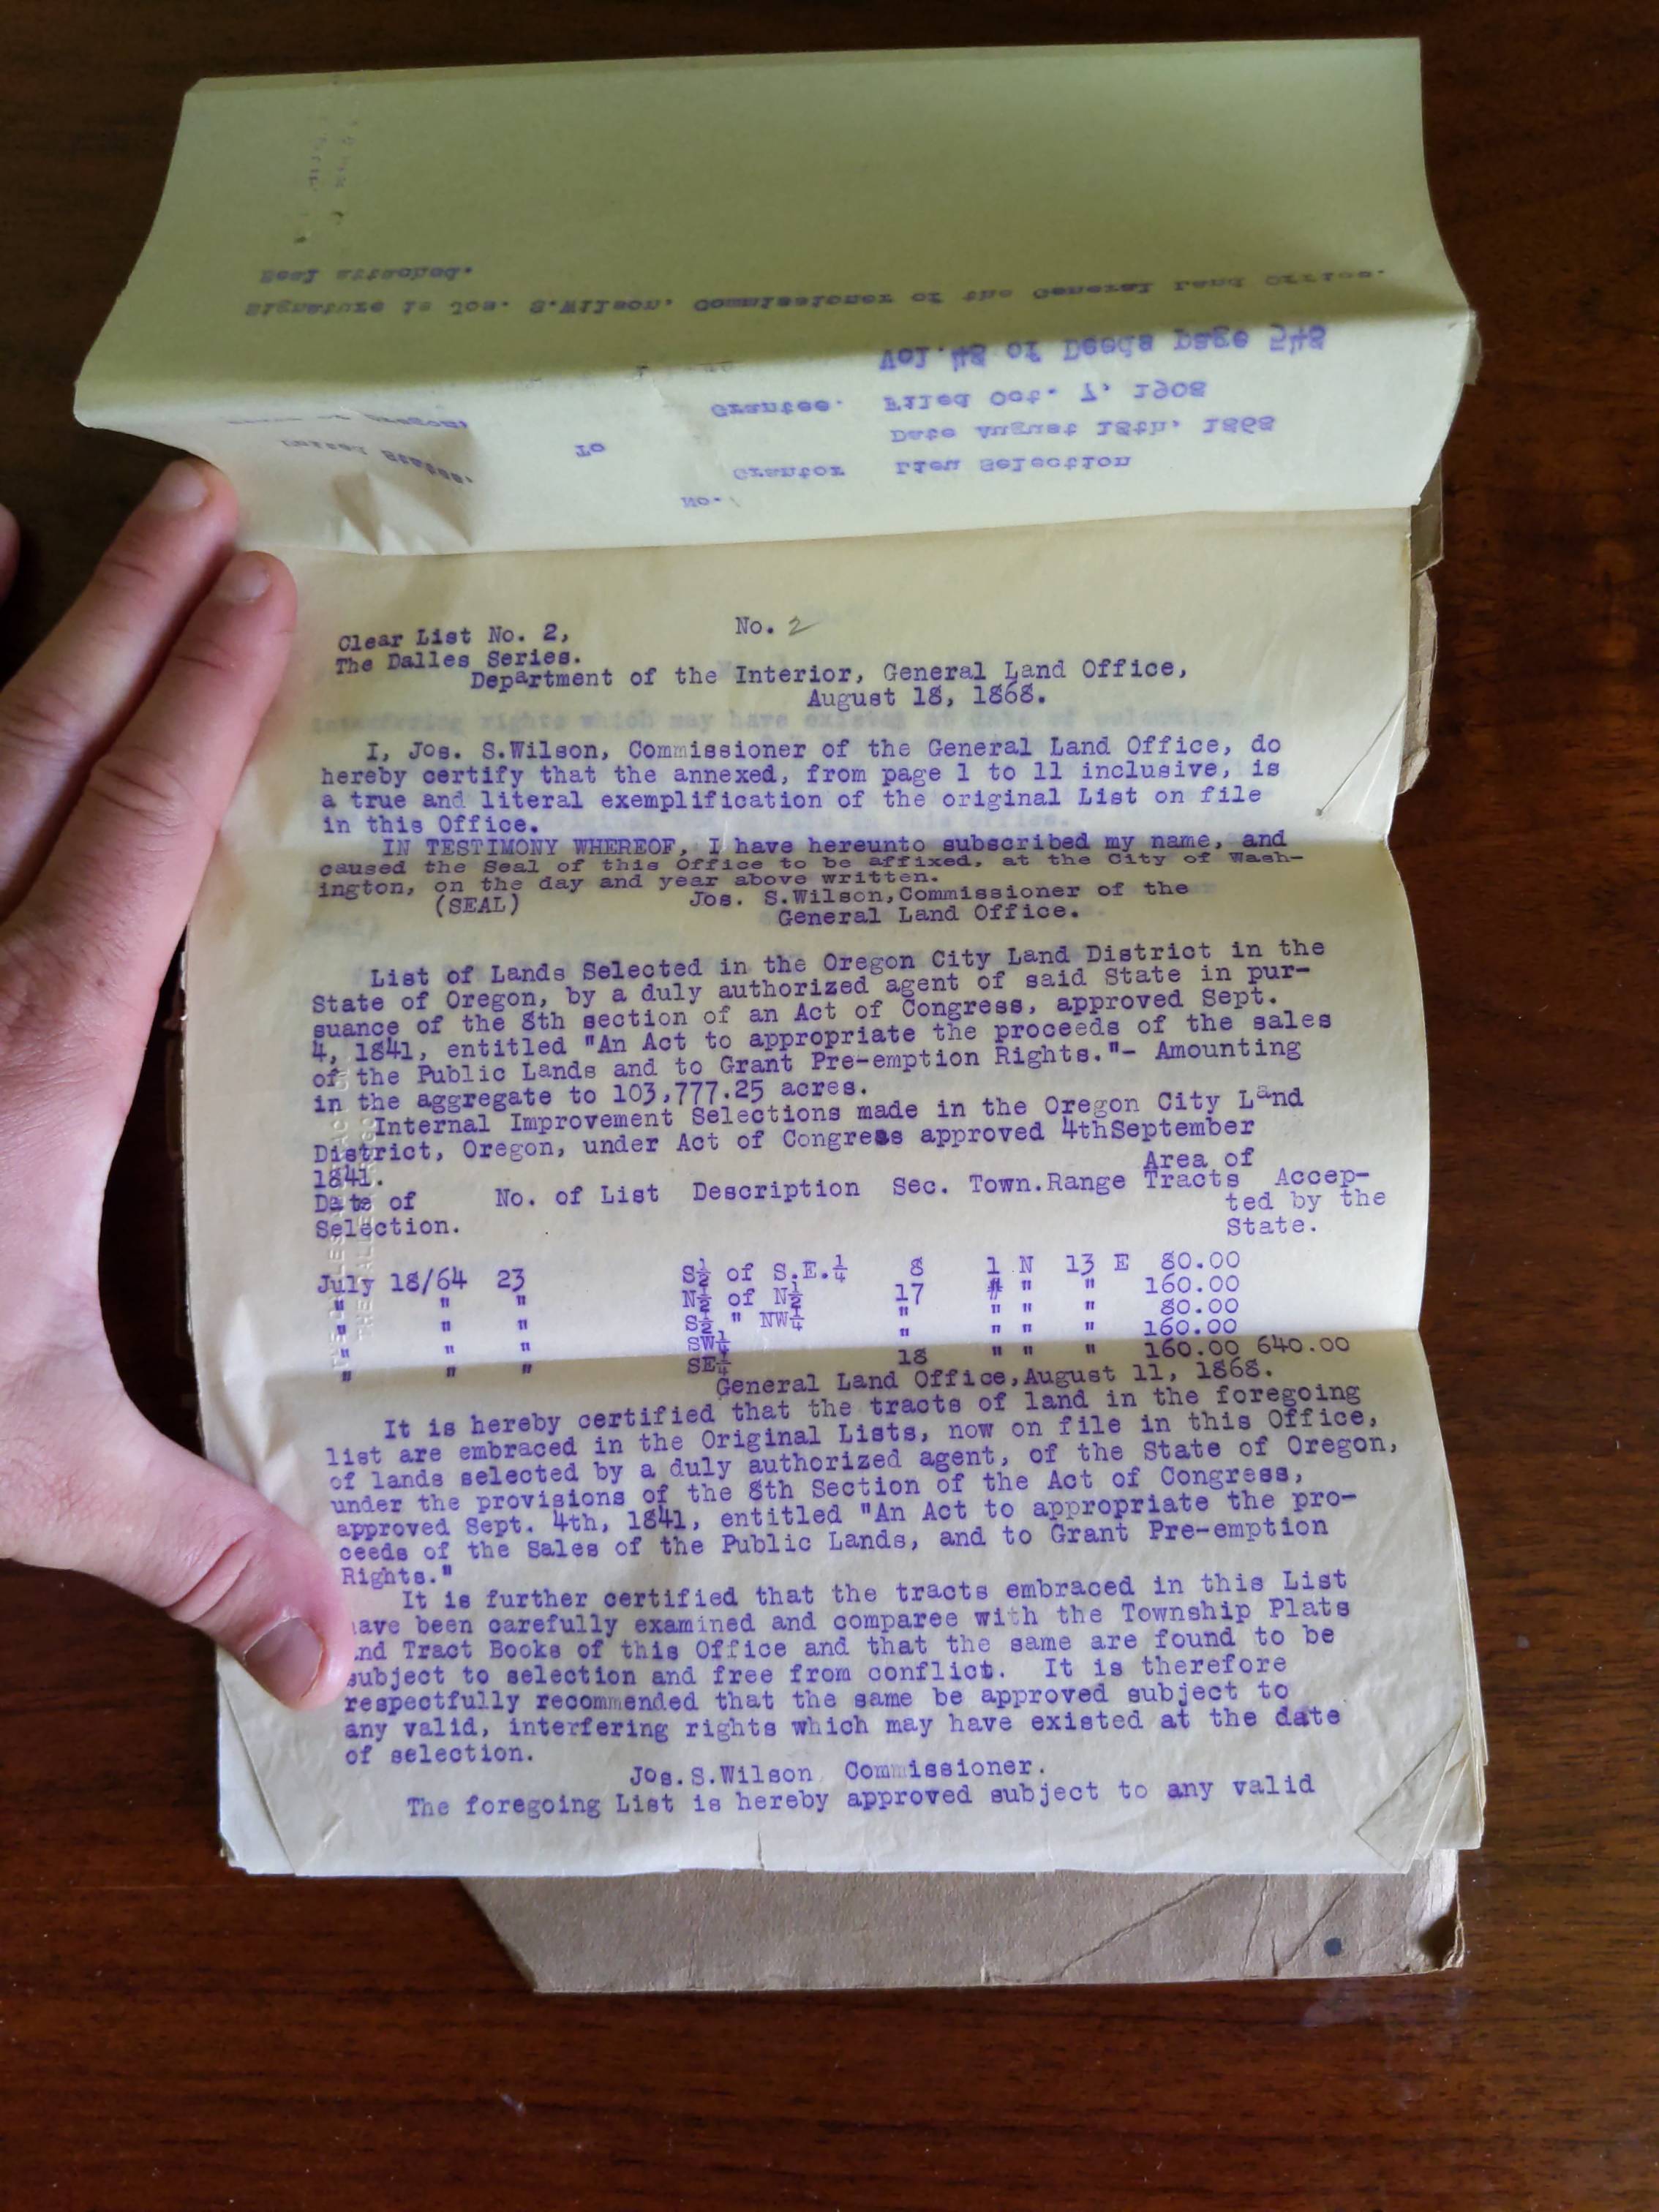 No.
United States, Grantor Lieu Selection
To Date August 18th, 1868
Grantee. Filed Oct. 7, 1908
Vol.48 of Deeds page 548
Signature is Jos. S.Wilson, Commissioner of the General Land Office.
Seal attached.
No. 2
Clear List No. 2,
The Dalles Series.
Department of the Interior, General Land Office,
August 18, 1868.
I, Jos. S.Wilson, Commissioner of the General Land Office, do
hereby certify that the annexed, from page 1 to 11 inclusive, is
a true and literal exemplification of the original List on file
in this Office.
IN TESTIMONY WHEREOF, I have hereunto subscribed my name, and
caused the Seal of this Office to be affixed, at the City of Wash-
ington, on the day and year above written.
(SEAL) Jos. S.Wilson,Commissioner of the
General Land Office.
List of Lands Selected in the Oregon City Land District in the
State of Oregon, by a duly authorized agent of said State in pur-
suance of the 8th section of an Act of Congress, approved Sept.
4, 1841, entitled "An Act to appropriate the proceeds of the sales
of the Public Lands and to Grant Pre-emption Rights."- Amounting
in the aggregate to 103,777.25 acres.
Internal Improvement Selections made in the Oregon City Land
District, Oregon, under Act of Congress approved 4thSeptember
1841. Area of
Date of No. of List Description Sec. Town.Range Tracts Accep-
Selection. ted by the
State.
July 18/64 23 S½ of S.E.¼ 8 1 N 13 E 80.00
" " " N½ of N½ 17 " " " 160.00
" " " S½ " NW¼ " " " " 80.00
" " " SW¼ " " " " 160.00
" " " SE¼ 18 " " " 160.00 640.00
General Land Office,August 11, 1868.
It is hereby certified that the tracts of land in the foregoing
list are embraced in the Original Lists, now on file in this Office,
of lands selected by a duly authorized agent, of the State of Oregon,
under the provisions of the 8th Section of the Act of Congress,
approved Sept. 4th, 1841, entitled "An Act to appropriate the pro-
ceeds of the Sales of the Public Lands, and to Grant Pre-emption
Rights."
It is further certified that the tracts embraced in this List
have been carefully examined and comparee with the Township Plats
and Tract Books of this Office and that the same are found to be
subject to selection and free from conflict. It is therefore
respectfully recommended that the same be approved subject to
any valid, interfering rights which may have existed at the date
of selection.
Jos.S.Wilson Commissioner.
The foregoing List is hereby approved subject to any valid